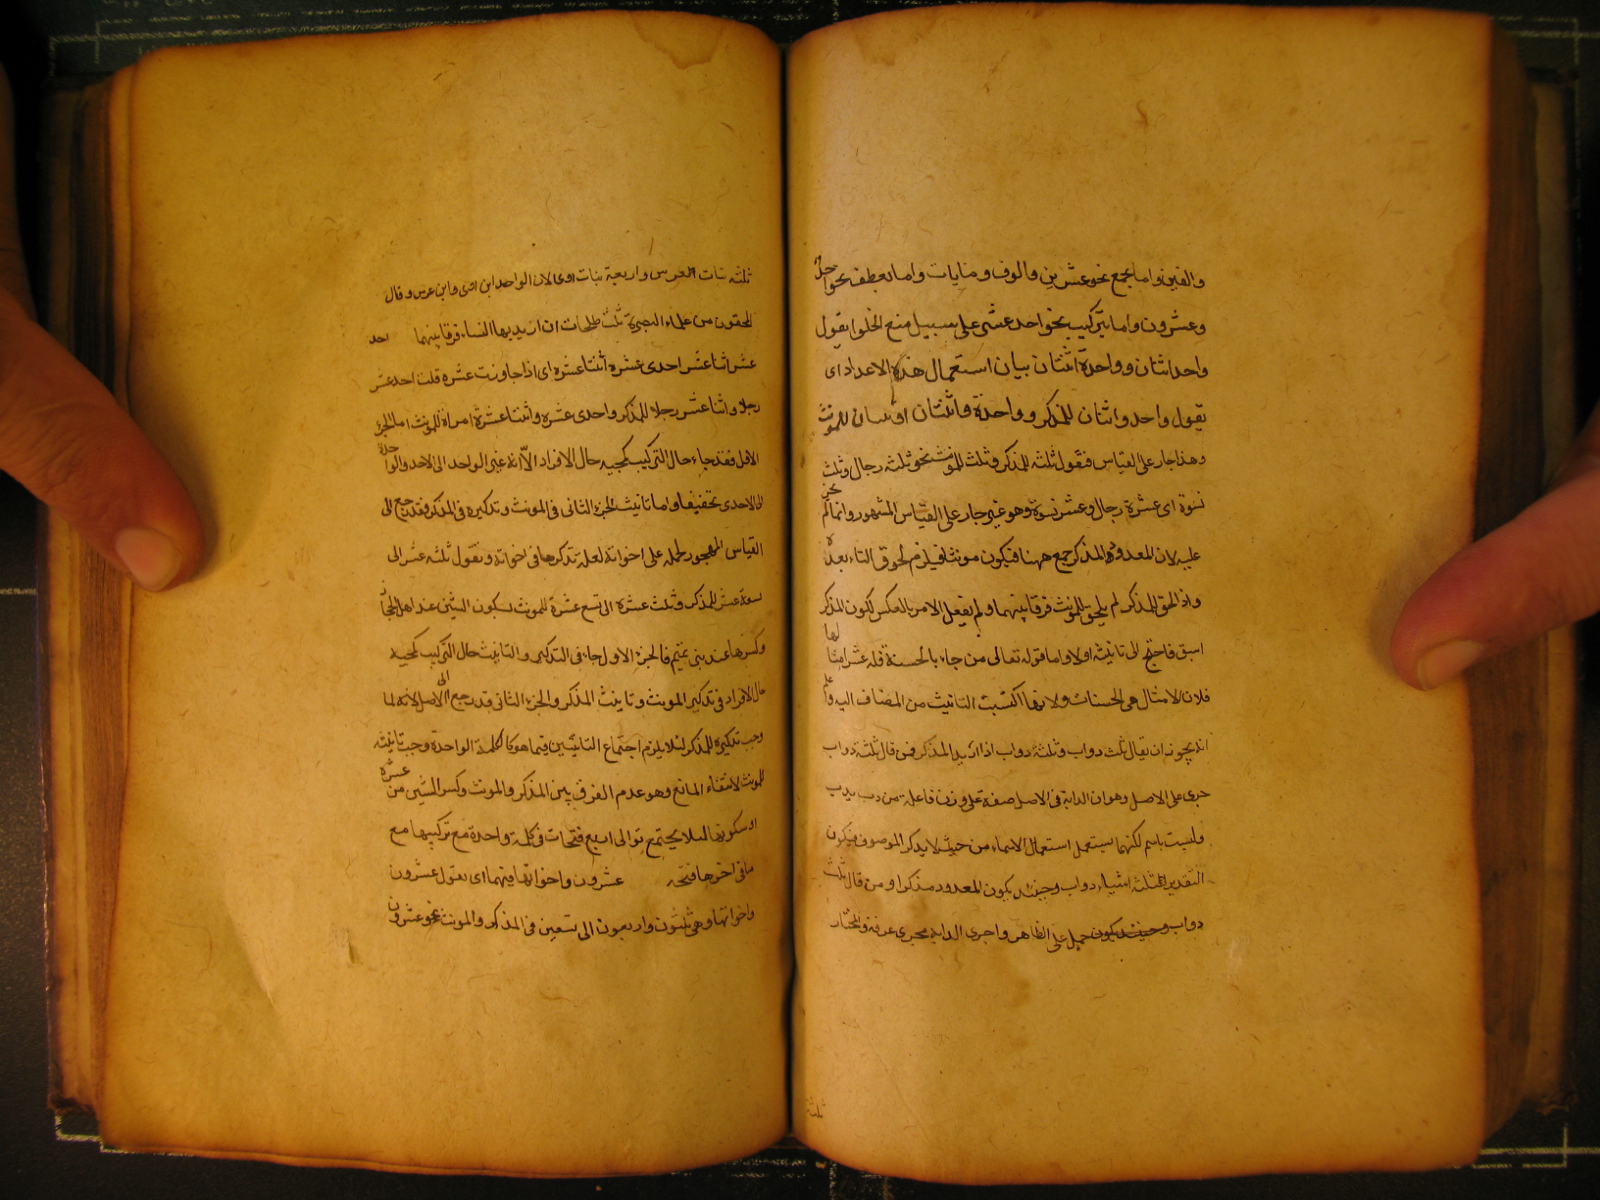 والفين واما بجمع نحو عشرين والوف ومايات واما بعطف نحو احد
وعشرون واما بتركيب نحو احد عشر على سبيل منع الخلو ا يقول
واحد اثنان وواحدة اثنتان بيان استعمال هذه الاعداد اى
يقول واحد واثنان للمذكر وواحدة واثنتان او ثنتان للمونث
وهذا جار على القياس فتقول ثلثه للمذكر وثلث للمونث نحو ثلثه رجال وثلث
نسوة اى عشرة رجال وعشر نسوة وهو غير جار على القياس المشهور وانما لم يجز
عليه لان المعدود المذكر جمع ههنا فيكون مونثا فيلزم لحوق التاء بعدده
واذ الحق المذكر لم يلحق للمونث فرقا بينهما ولم يفعل الامر بالعكس لكون المذكر
اسبق فاحتج الى تانيثه اولا واما قوله تعالى من جاء بالحسنة فله عشر امثالها
فلان الامثال هى الحسنات ولانها اكتسبت التانيث من المضاف اليه واعلم
انه يجوز ان يقال ثلث دواب وثلثة دواب اذا اريد المذكر فمن قال ثلثه دواب
جرى على الاصل وهو ان الدابة فى الاصل صفة على وزن فاعلة من دب يدب
وليست باسم لكنها يستعمل استعمال الاسماء من حيث لا يذكر الموصوف فيكون
التقدير ثلثه اشياء دواب وحينئذ يكون المعدود مذكرا ومن قال ثلث
دواب وحينئذ يكون حمل على الظاهر واجرى الدابة مجرى عرفة والمختار
ثلثة
ثلثه بنات العرس واربعة بنات اوى لان الواحد ابن اوى وابن عرس وقال
المحققون من علماء البصرة ثلث طلحات ان اريد بها النساء فرقا بينهما احد
عشر اثنا عشر احدى عشرة اثنتا عشرة اى اذا جاوزت عشره قلت احد عشر
رجلا واثنا عشر رجلا للمذكر واحدى عشره واثنتا عشرة امراة للمونث اما الجزء
الاول فقد جاء حال التركيب كمجيه حال الافراد الا انه غير الواحد الى الاحد والواحدة
الى الاحدى تخفيفا واما تانيث الجزء الثانى فى المونث وتذكيره فى المذكر فقد رجع الى
القياس المهجور حمله على اخواته لعلة تذكرها فى اخواته وتقول ثلثه عشر الى
تسعة عشر للمذكر وثلث عشرة الى تسع عشرة للمونث بسكون الشين عند اهل الحجاز
وكسرها عند بنى تميم فالجزء الاول جاء فى التذكير والتانيث حال التركيب كمجيه
حال الافراد فى تذكير المونث وتانيث المذكر والجزء الثانى قد رجع الى الاصل لانه لما
وجب تذكيره للمذكر لئلا يلزم اجتماع التانيثين فيما هو كالكلمة الواحدة وجب تانيثه
للمونث لانتفاء المانع وهو عدم الفرق بين المذكر والمونث وكسر الشين من عشرة
او سكونها لئلا يجتمع توالى اربع فتحات فى كلمة واحدة مع تركيبها مع
ما فى اخرها فتحه عشرون واخواتها فيهما اى تقول عشرون
واخواتها وهى ثلثون واربعون الى تسعين فى المذكر والمونث نحو عشرون